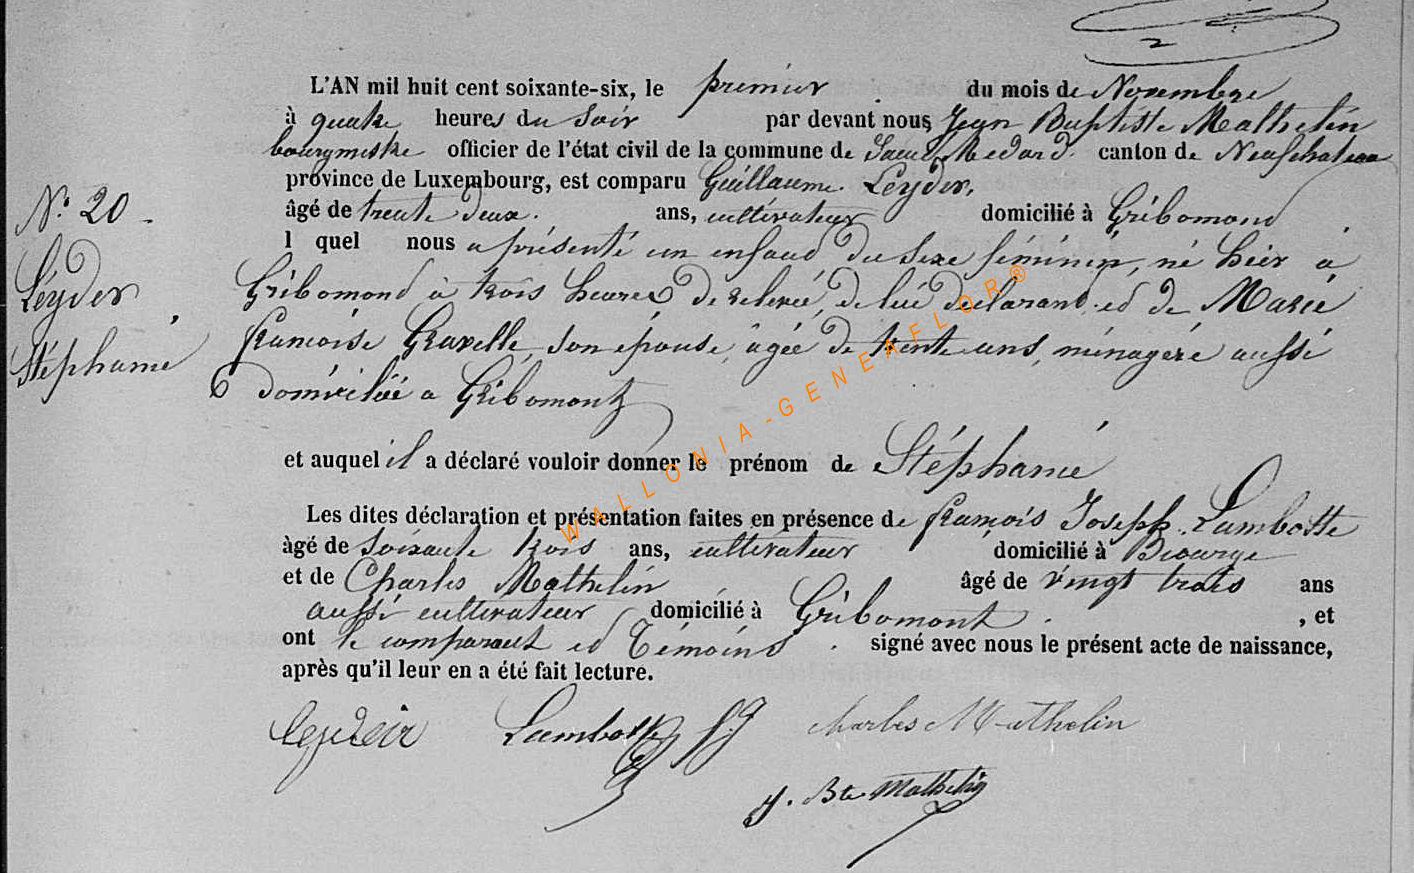 L'AN mil huit cent soixante-six, le premier du mois de Novembre
à quatre heures du Soir par devant nous, Jean Baptiste Mathelin
bourgmestre officier de l'état civil de la commune de Saint Médard canton de Neufchateau
province de Luxembourg, est comparu Guillaume Leyder,
âgé de trente deux ans, cultivateur domicilié à Gribomond
l quel nous a présenté un enfant du sexe féminin, né hier à
N.° 20
Gribomond à trois heures de relevée, de lui déclarant et de Marie
Leyder,
françoise Gravelle, son épouse, âgée de trente ans, ménagère aussi
Stéphanie
domiciliée a Gribomont
et auquel il a déclaré vouloir donner le prénom de Stéphanie
Les dites déclaration et présentation faites en présence de françois Joseph Lambotte
âgé de soixante trois ans, cultivateur domicilié à Biourge
et de Charles Mathelin âgé de vingt trois ans
aussi cultivateur domicilié à Gribomont , et
ont le comparant et Témoins signé avec nous le présent acte de naissance,
après qu'il leur en a été fait lecture.
Leyder Lambotte f. J. Charles Mathelin
J. Bte Mathelin
WALLONIA-GENEAFLOR®